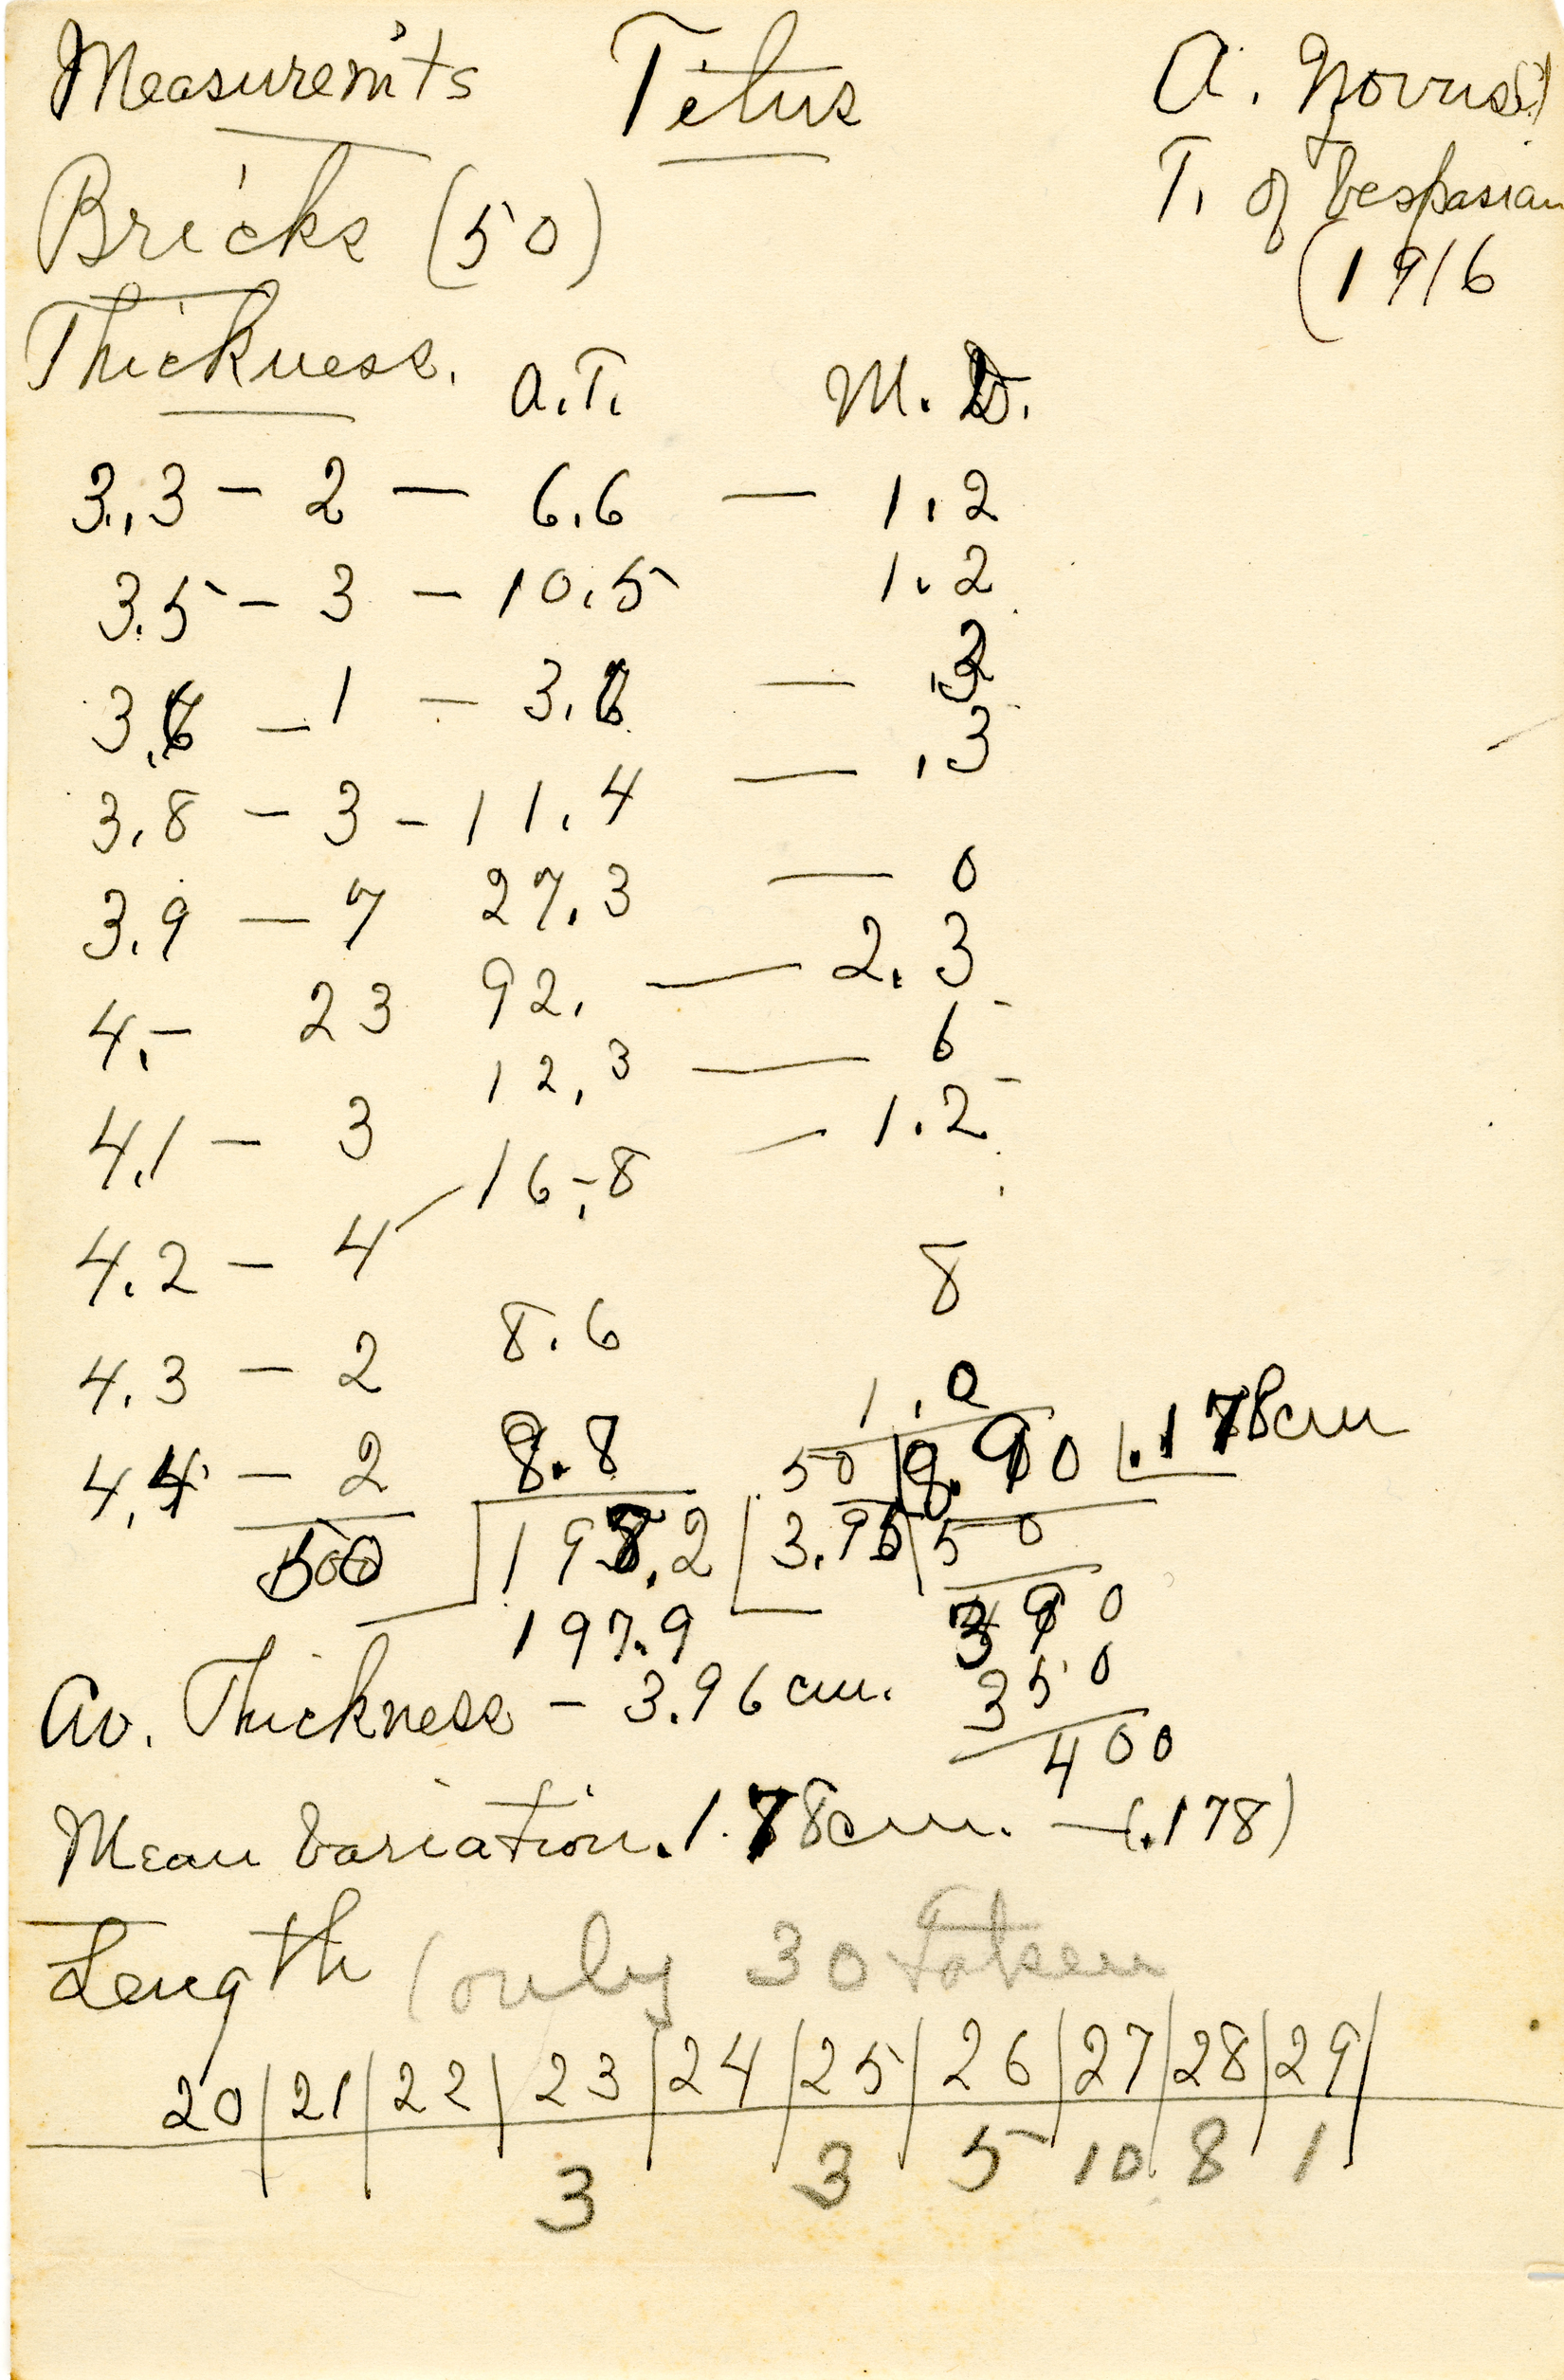 Measurem'ts Titus A. Norris
Bricks (50) T. of Vespasian
(1916
Thickness. A.T. M. D.
3.3 - 2 - 6.6 - 1.2
3.5 - 3 - 10.5 1.2
3. - 1 - 3. -
3.8 - 3 - 11.4 - .3
3.9 - 7 27.3 - 0
4.- 23 92. - 2.3
4.1 - 3 12.3 - 6
4.2 - 4 - 16.8 - 1.2
4.3 - 2 8.6 8
4.4 - 2 8.8 1.0
50 8.90 .178cm
50 198.2 3.95 50
197.9 390
350
400
Av. Thickness - 3.96 cm.
Mean Variation .1.78cm. - (.178)
Length (only 30 taken
20 | 21 | 22 | 23 | 24 | 25 | 26 | 27 | 28 | 29 |
3 3 5 10 8 1